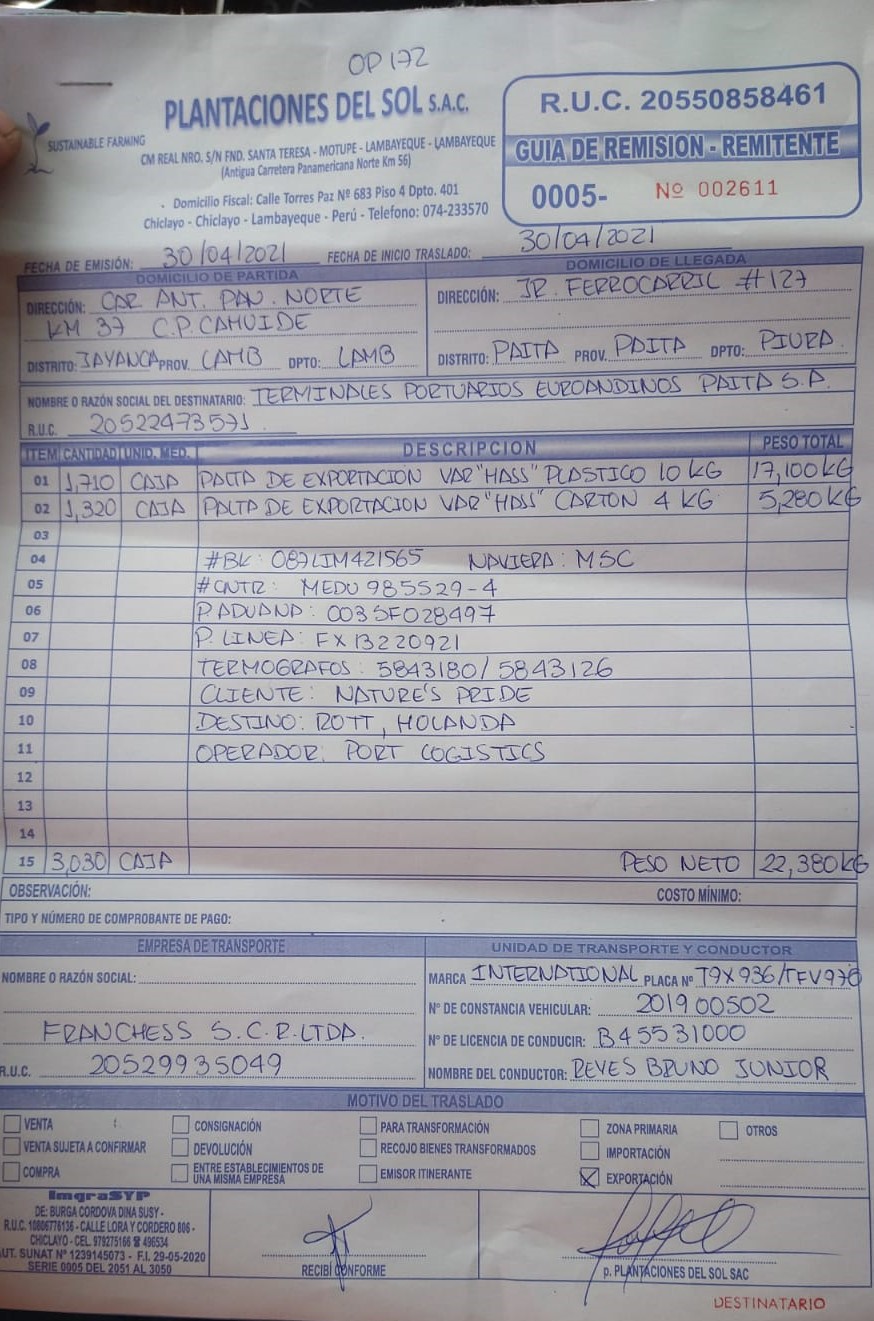 OP 172
PLANTACIONES DEL SOL S.A.C.
SUSTAINABLE FARMING
CM REAL NRO. S/N FND. SANTA TERESA - MOTUPE - LAMBAYEQUE - LAMBAYEQUE
(Antigua Carretera Panamericana Norte Km 56)
- Domicilio Fiscal: Calle Torres Paz Nº 683 Piso 4 Dpto. 401
Chiclayo - Chiclayo - Lambayeque - Perú - Telefono: 074-233570
R.U.C. 20550858461
GUIA DE REMISION - REMITENTE
0005- Nº 002611
FECHA DE EMISIÓN: 30/04/2021 FECHA DE INICIO TRASLADO: 30/04/2021
DOMICILIO DE PARTIDA
DIRECCIÓN: CAR ANT. PAN. NORTE
KM 37 C.P. CAHUIDE
DISTRITO: JAYANCA PROV. LAMB DPTO: LAMB
DOMICILIO DE LLEGADA
DIRECCIÓN: JR. FERROCARRIL #127
DISTRITO: PAITA PROV. PAITA DPTO: PIURA
NOMBRE O RAZÓN SOCIAL DEL DESTINATARIO: TERMINALES PORTUARIOS EUROANDINOS PAITA S.A.
R.U.C. 20522473571
ITEM CANTIDAD UNID. MED. DESCRIPCION PESO TOTAL
01 1,710 CAJA PALTA DE EXPORTACION VAR "HASS" PLASTICO 10 KG 17,100 KG
02 1,320 CAJA PALTA DE EXPORTACION VAR "HASS" CARTON 4 KG 5,280 KG
03
04 #BK: 087LIM421565 NAVIERA: MSC
05 #CNTR: MEDU 985529-4
06 P. ADUANA: 0035F028497
07 P. LINEA: FX13220921
08 TERMOGRAFOS: 5843180/5843126
09 CLIENTE: NATURE'S PRIDE
10 DESTINO: ROTT, HOLANDA
11 OPERADOR: PORT LOGISTICS
12
13
14
15 3,030 CAJA PESO NETO 22,380 KG
OBSERVACIÓN: COSTO MÍNIMO:
TIPO Y NÚMERO DE COMPROBANTE DE PAGO:
EMPRESA DE TRANSPORTE
NOMBRE O RAZÓN SOCIAL:
FRANCHESS S.C.R.LTDA.
R.U.C. 20529935049
UNIDAD DE TRANSPORTE Y CONDUCTOR
MARCA INTERNATIONAL PLACA Nº T9X936/TFV978
Nº DE CONSTANCIA VEHICULAR: 201900502
Nº DE LICENCIA DE CONDUCIR: B45531000
NOMBRE DEL CONDUCTOR: REYES BRUNO JUNIOR
MOTIVO DEL TRASLADO
VENTA CONSIGNACIÓN PARA TRANSFORMACIÓN ZONA PRIMARIA OTROS
VENTA SUJETA A CONFIRMAR DEVOLUCIÓN RECOJO BIENES TRANSFORMADOS IMPORTACIÓN
COMPRA ENTRE ESTABLECIMIENTOS DE UNA MISMA EMPRESA EMISOR ITINERANTE EXPORTACIÓN
ImgraSYP
DE: BURGA CORDOVA DINA SUSY -
R.U.C. 10806776136 - CALLE LORA Y CORDERO 806 -
CHICLAYO - CEL. 979275166 ☎ 496534
AUT. SUNAT Nº 1239145073 - F.I. 29-05-2020
SERIE 0005 DEL 2051 AL 3050
RECIBÍ CONFORME
p. PLANTACIONES DEL SOL SAC
DESTINATARIO